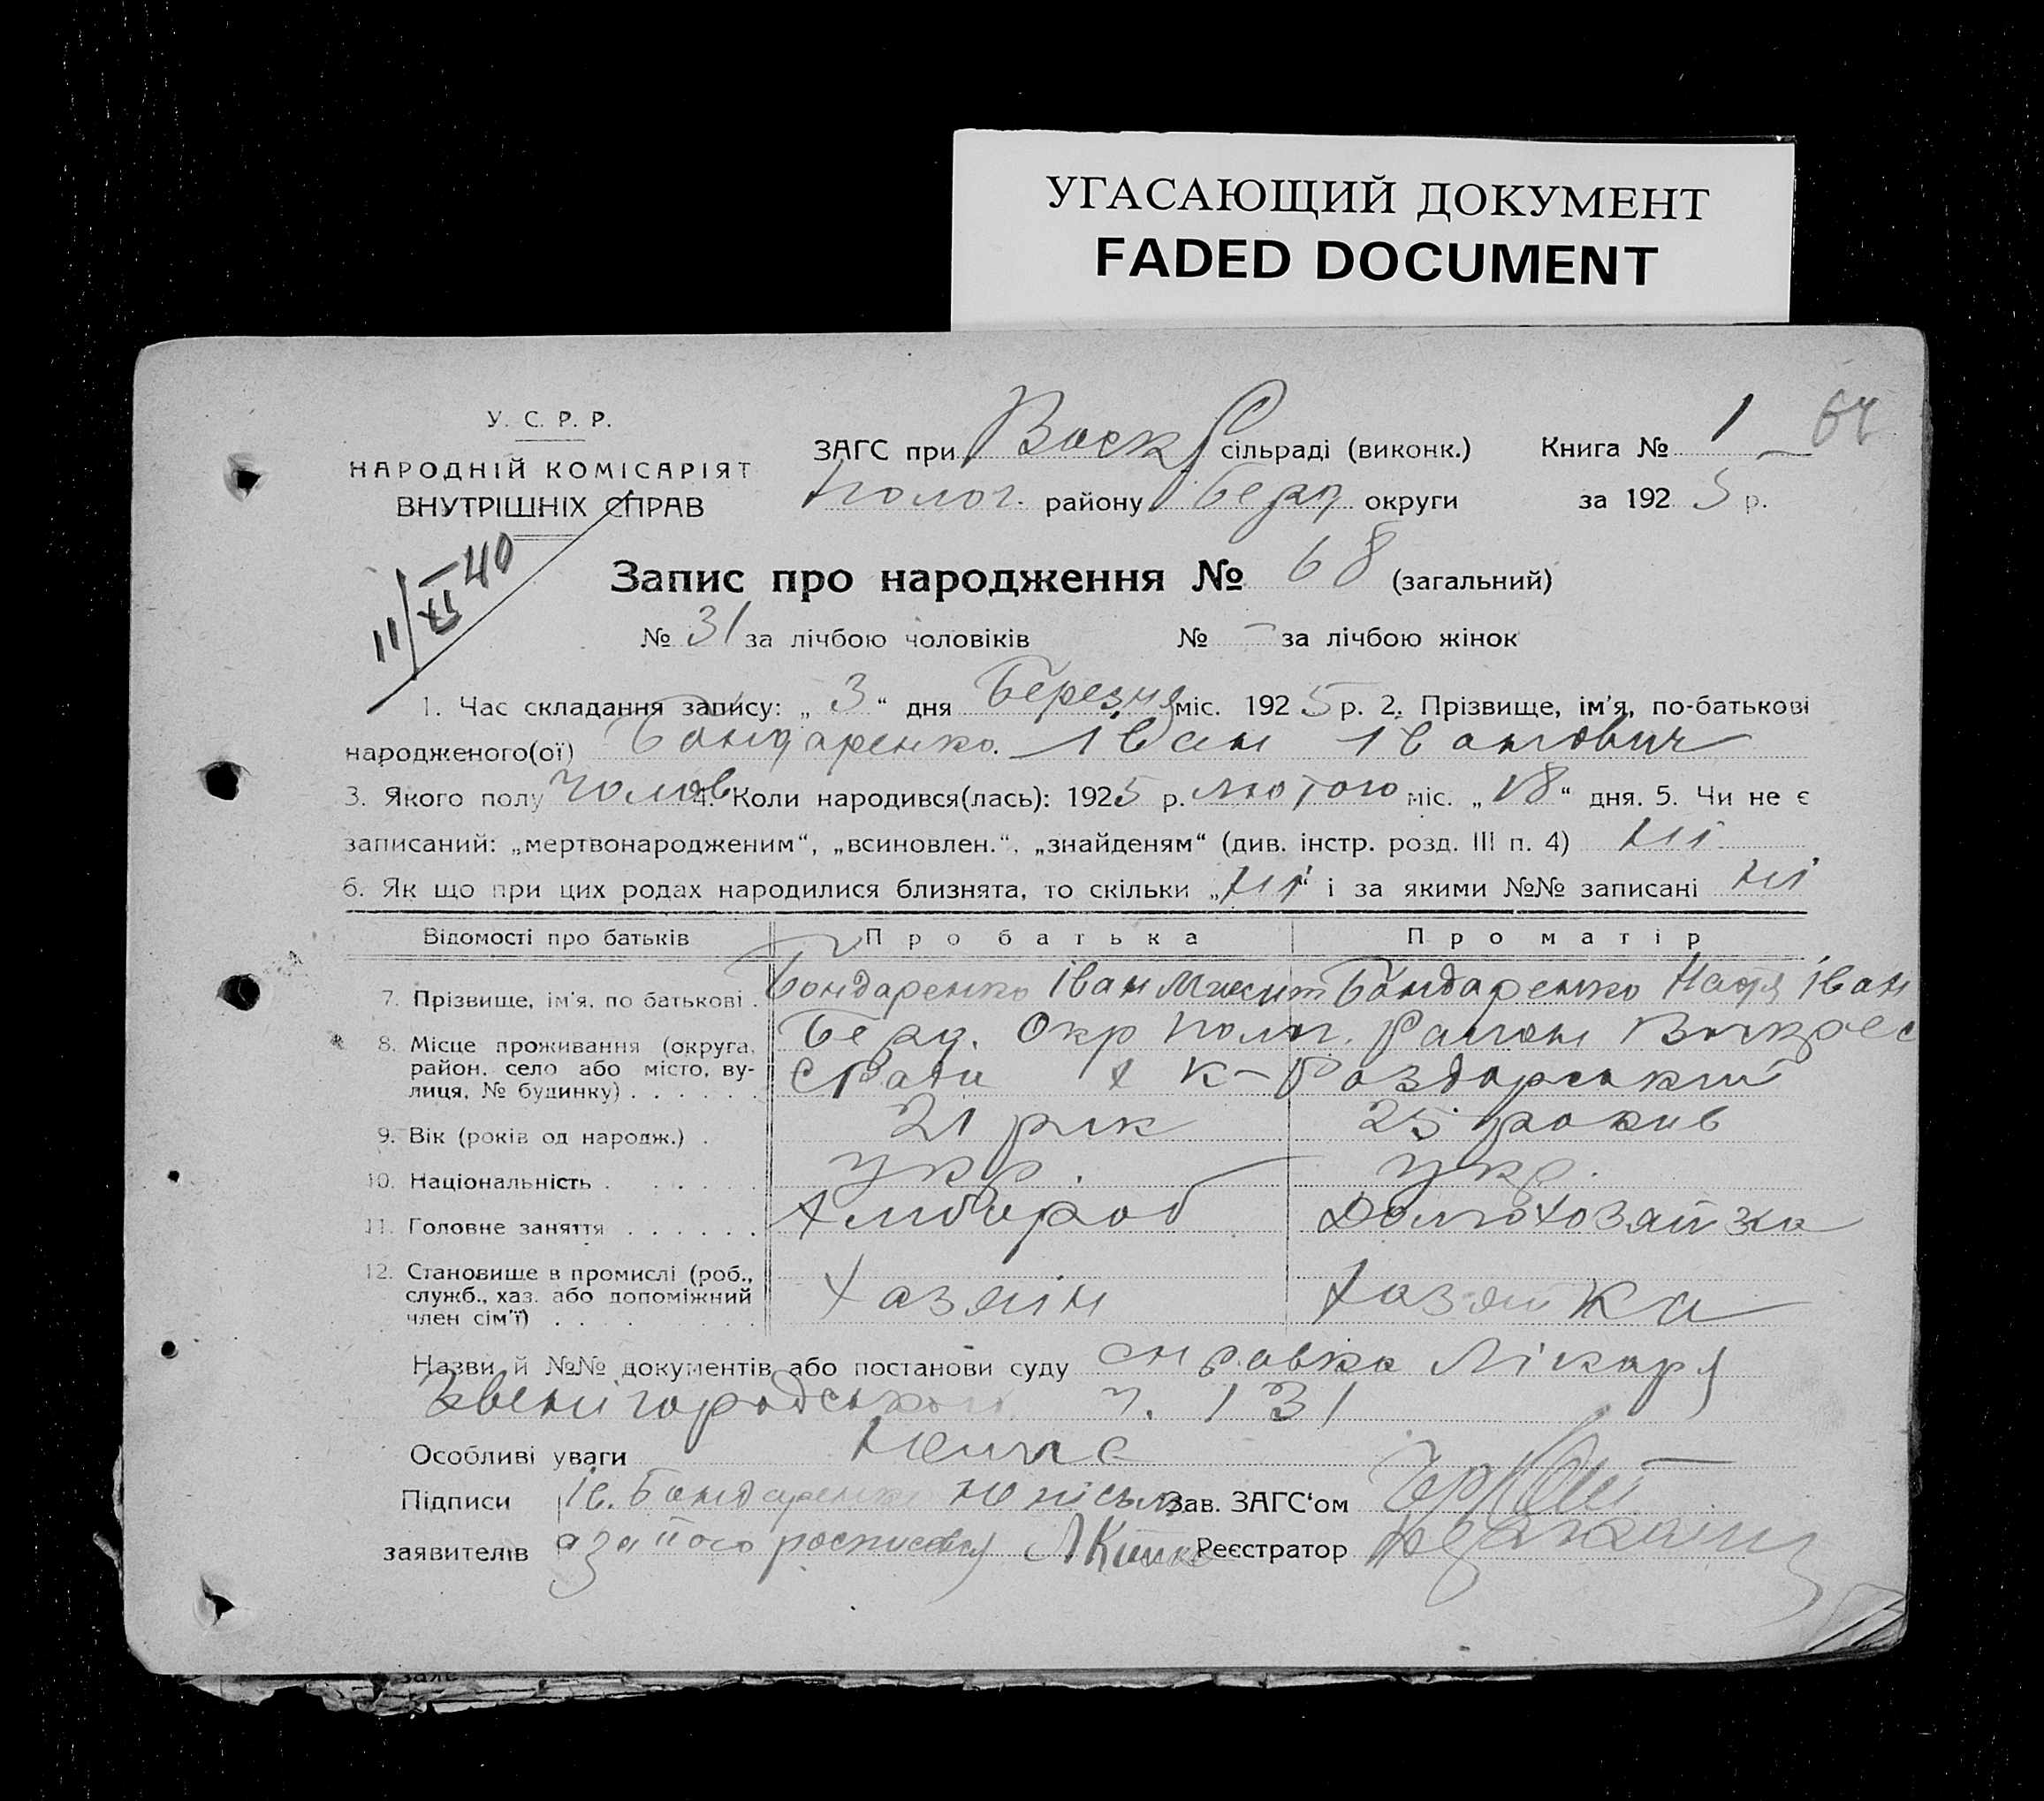 УГАСАЮЩИЙ ДОКУМЕНТ
FADED DOCUMENT
У. С. Р. Р.
НАРОДНІЙ КОМІСАРІЯТ
ВНУТРІШНІХ СПРАВ
11/XI 40
ЗАГС при Воскр сільраді (виконк.) Книга № 1 64
Полог. району Берд. округи за 1925 р.
Запис про народження № 68 (загальний)
№ 31 за лічбою чоловіків № – за лічбою жінок
1. Час складання запису: „ 3 “ дня Березня міс. 1925 р. 2. Прізвище, ім'я, по-батькові
народженого(ої) Бондаренко Іван Іванович
3. Якого полу Чолов 4. Коли народився(лась): 1925 р. лютого міс. „ 18 “ дня. 5. Чи не є
записаний: „мертвонародженим“, „всиновлен.“, „знайденям“ (див. інстр. розд. III п. 4) ні
6. Як що при цих родах народилися близнята, то скільки „ні“ і за якими №№ записані ні
Відомості про батьків Про батька Про матір
7. Прізвище, ім'я, по батькові . Бондаренко Іван Микит Бондаренко Надя Іван
8. Місце проживання (округа, район, село або місто, вулиця, № будинку) . . . . . . Берд. Окр Полог. Район Воскрес
сРади х К-Роздорський
9. Вік (років од народж.) . 21 рік 25 років
10. Національність . . . . . . укр. укр.
11. Головне заняття . . . . . . Хлибороб Домохозяйка
12. Становище в промислі (роб., служб., хаз. або допоміжний член сім'ї) . . . Хазяін Хазяйка
Назви й №№ документів або постанови суду справка Лікаря
Звенігородського ч. 131
Особливі уваги Немає
Підписи Ів. Бондаренко не письм. Зав. ЗАГС'ом
заявителів а за його росписався Реєстратор